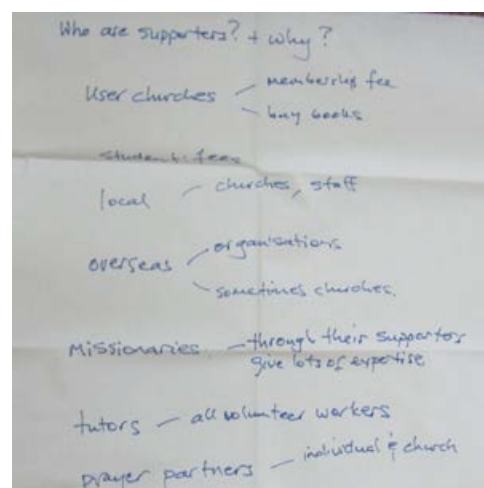 Who are supporters? + why?
User churches — membership fee
— buy books
student fees
local — churches, staff
overseas — organisations
— sometimes churches.
Missionaries — through their supporters
give lots of expertise
tutors — all volunteer workers
prayer partners — individual & church